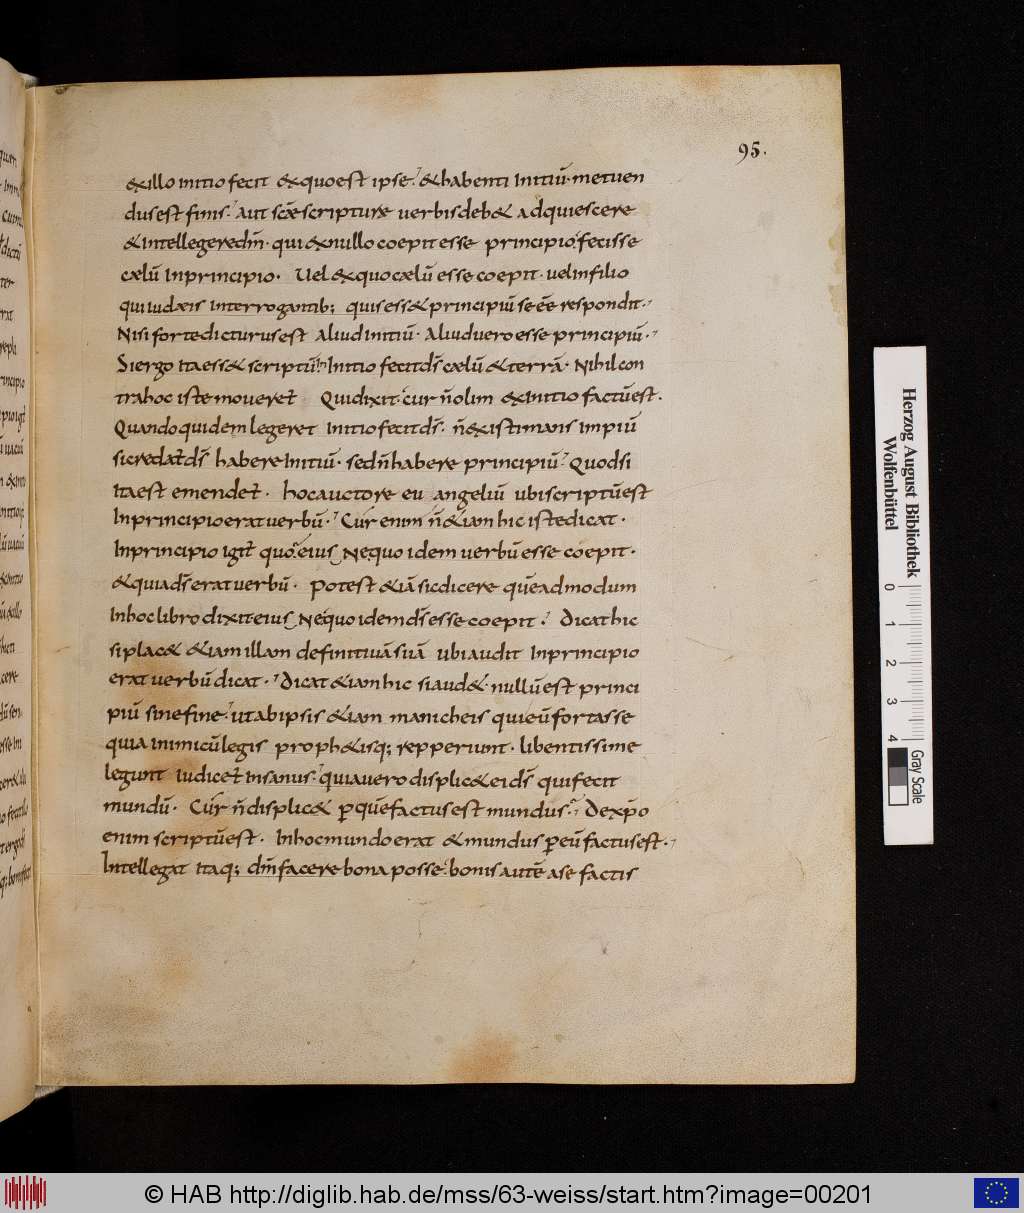 95.
&illo initio fecit &quo est ipse. &habenti initiū· metuen
dus est finis. aut scāe scripturę uerbis deb& adquiescere
&intellegere dm̄· qui &nullo coepit esse principio, fecisse
cęlū Inprincipio· Uel &quo cælū esse coepit· uel infilio
qui iudæis interrogantib; quis ess& principiū se eē respondit·
Nisi forte dicturus est aliud initiū· Aliud uero esse principiū·
Si ergo ita ess& scriptū· Initio fecit ds̄ cælū &terrā· Nihil con
tra hoc iste moueret Qui dixit· cur n̄ olim &initio factū est·
Quando quidem legeret initio fecit ds̄· n̄ &istimans impiū
si credat ds̄ habere initiū· sed n̄ habere principiū· Quod si
ita est emendet· hoc auctore eu angeliū ubi scriptū est
Inprincipio erat uerbū· Cur enim n̄ &iam hic iste dicat·
Inprincipio igit quo, eius, Nequo idem uerbū esse coepit·
&quia ds̄ erat uerbū· potest &iā sic dicere quē admodum
Inhoc libro dixit eius, Nequo idem ds̄ esse coepit· Dicat hic
si plac& &iam illam definitiuā suā ubi audit Inprincipio
erat uerbū dicat· Dicat &iam hic si aud&· nullū est princi
piū sine fine· ut ab ipsis &iam manicheis qui eū fortasse
quia inimicū legis proph&isq; repperiunt· libentissime
legunt iudicet insanus· quia uero displic& ei ds̄ qui fecit
mundū· Cur n̄ displic& p̄ quē factus est mundus· De xp̄o
enim scriptū est· Inhoc mundo erat &mundus p̄ eū factus est·
Intellegat itaq; dm̄ facere bona posse· bonis autē a se factis
Herzog August Bibliothek
Wolfenbüttel
0 1 2 3 4
Gray Scale
© HAB http://diglib.hab.de/mss/63-weiss/start.htm?image=00201